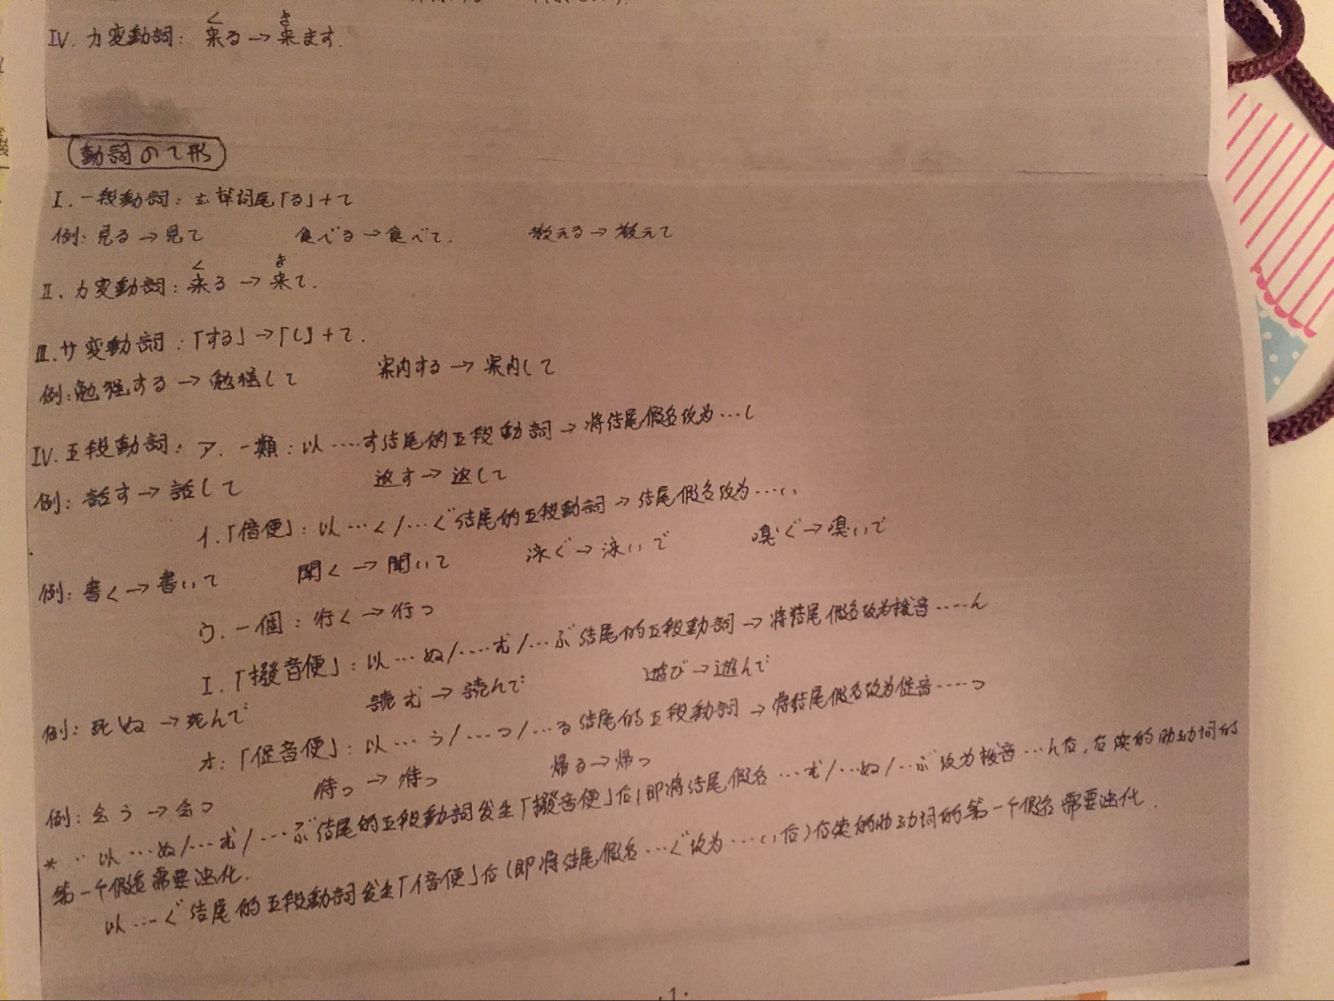 Ⅳ. カ変動詞: 来る→来ます.
く き
動詞のて形
Ⅰ. 一段動詞: 去掉詞尾「る」+て
例: 見る→見て 食べる→食べて. 教える→教えて
く き
Ⅱ. カ変動詞: 来る→来て.
Ⅲ. サ変動詞: 「する」→「し」+て.
例: 勉強する→勉強して 案内する→案内して
Ⅳ. 五段動詞: ア. 一類: 以……す结尾的五段動詞→将结尾假名改为…し
例: 話す→話して 返す→返して
イ.「イ音便」: 以…く/…ぐ结尾的五段動詞→结尾假名改为…い
例: 書く→書いて 聞く→聞いて 泳ぐ→泳いで 嗅ぐ→嗅いで
ウ. 一個: 行く→行っ
エ.「撥音便」: 以…ぬ/…む/…ぶ结尾的五段動詞→将结尾假名改为撥音……ん
例: 死ぬ→死んで 読む→読んで 遊び→遊んで
オ:「促音便」: 以…う/…つ/…る结尾的五段動詞→将结尾假名改为促音……っ
例: 会う→会っ 待つ→待っ 帰る→帰っ
* 以…ぬ/…む/…ぶ结尾的五段動詞发生「撥音便」后(即将结尾假名…む/…ぬ/…ぶ改为撥音…ん后,后续的助动词的
第一个假名需要浊化.
以…ぐ结尾的五段動詞发生「イ音便」后(即将结尾假名…ぐ改为…い后)后续的助动词的第一个假名需要浊化.
·1·